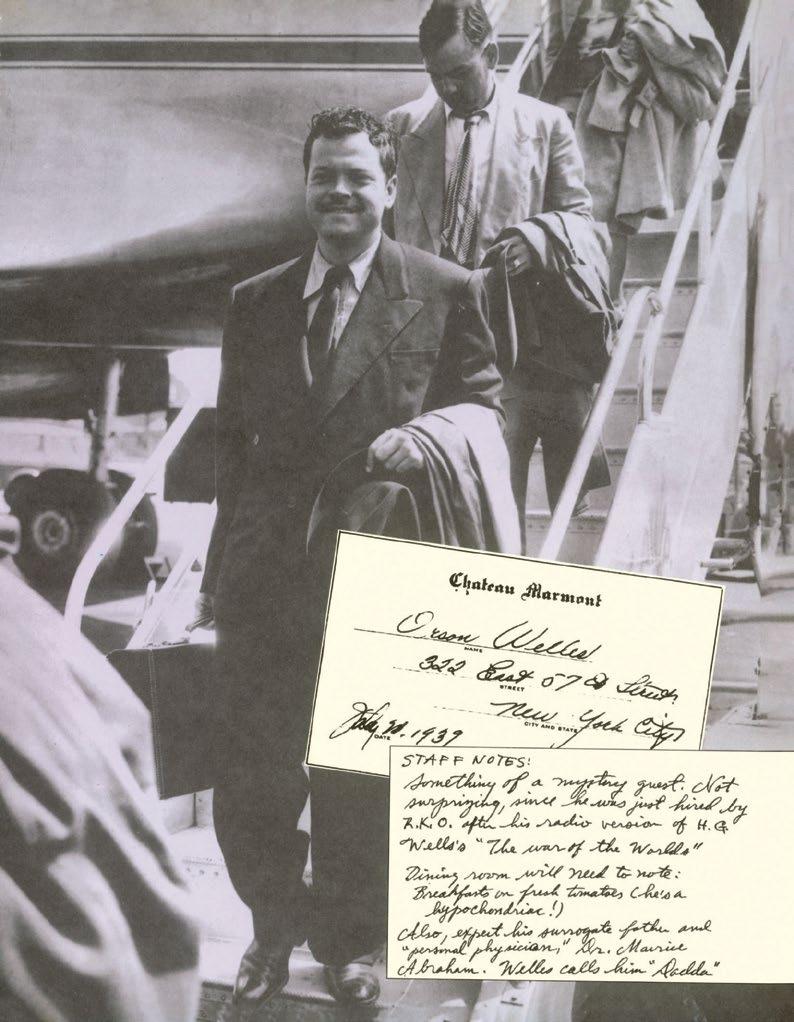 Chateau Marmont
Orson Welles
NAME
322 East 57 Street
STREET
New York City
CITY AND STATE
July 20, 1939
DATE
STAFF NOTES:
Something of a mystery guest. Not
surprizing, since he was just hired by
R.K.O. after his radio version of H.G.
Wells's "The war of the Worlds"
Dining room will need to note:
Breakfasts on fresh tomatoes (he's a
hypochondriac!)
Also, expect his surrogate father and
"personal physician," Dr. Maurice
Abraham. Welles calls him "Dadda"